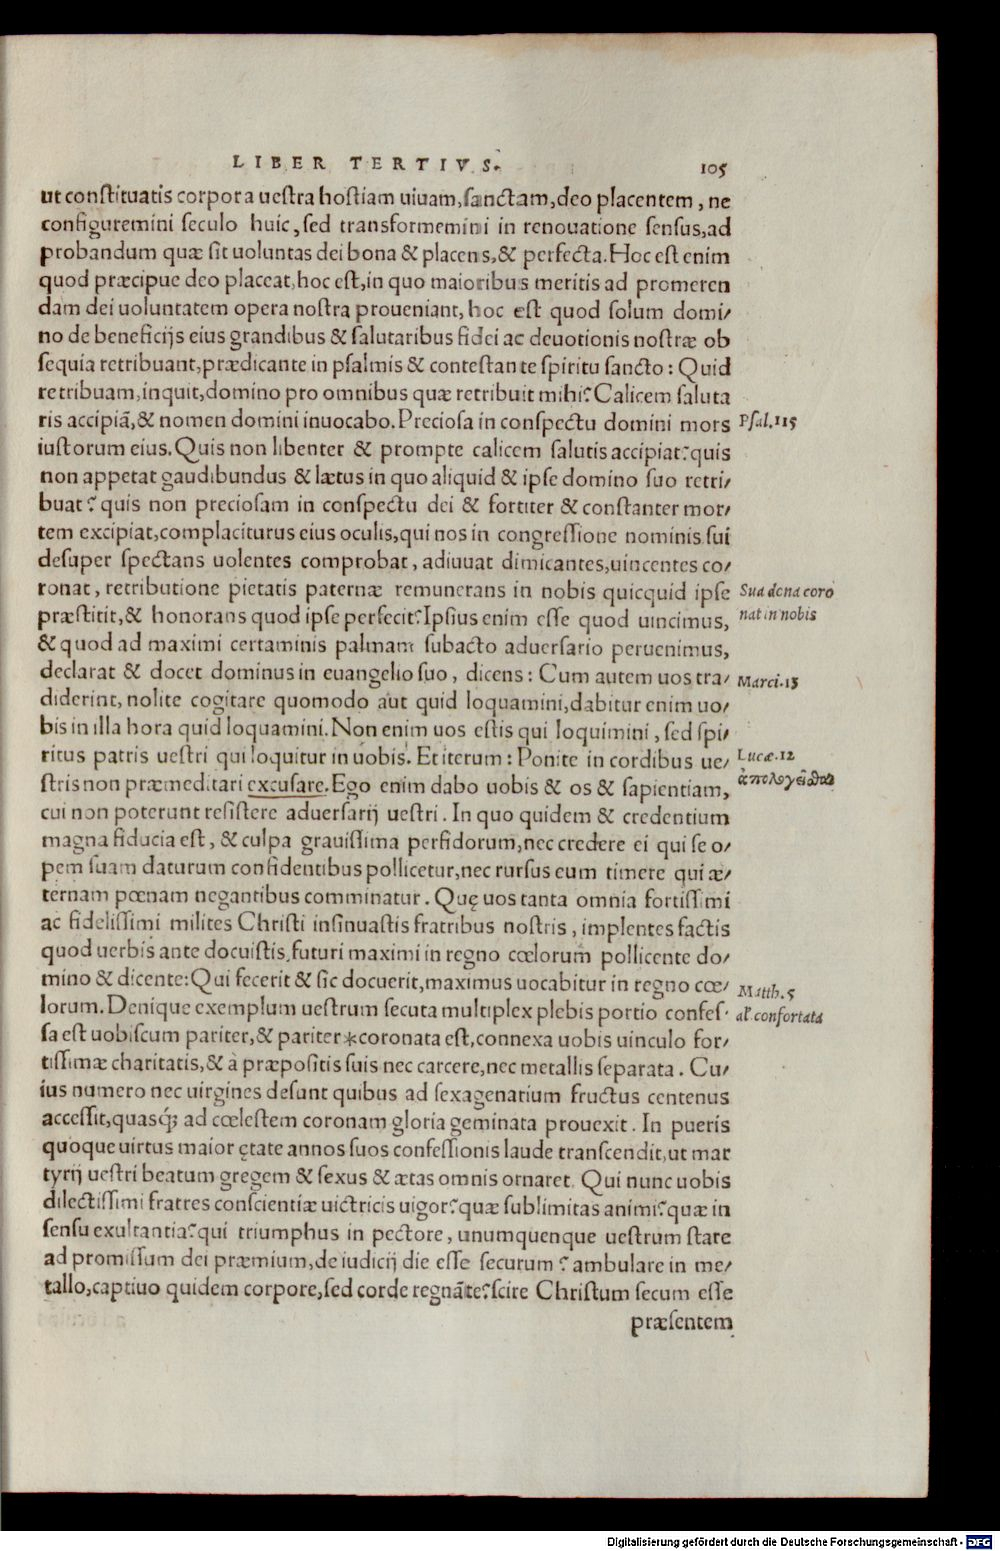 LIBER TERTIVS. 105
ut constituatis corpora uestra hostiam uiuam, sanctam, deo placentem, ne
configuremini seculo huic, sed transformemini in renouatione sensus, ad
probandum quæ sit uoluntas dei bona & placens, & perfecta. Hoc est enim
quod præcipue deo placeat, hoc est, in quo maioribus meritis ad promeren
dam dei uoluntatem opera nostra proueniant, hoc est quod solum domi/
no de beneficijs eius grandibus & salutaribus fidei ac deuotionis nostræ ob
sequia retribuant, prædicante in psalmis & contestante spiritu sancto: Quid
retribuam, inquit, domino pro omnibus quæ retribuit mihi? Calicem saluta
ris accipiã, & nomen domini inuocabo. Preciosa in conspectu domini mors
Psal.115
iustorum eius. Quis non libenter & prompte calicem salutis accipiat? quis
non appetat gaudibundus & lætus in quo aliquid & ipse domino suo retri/
buat? quis non preciosam in conspectu dei & fortiter & constanter mor/
tem excipiat, complaciturus eius oculis, qui nos in congressione nominis sui
desuper spectans uolentes comprobat, adiuuat dimicantes, uincentes co/
ronat, retributione pietatis paternæ remunerans in nobis quicquid ipse
Sua dona coro
præstitit, & honorans quod ipse perfecit? Ipsius enim esse quod uincimus,
nat in nobis
& quod ad maximi certaminis palmam subacto aduersario peruenimus,
declarat & docet dominus in euangelio suo, dicens: Cum autem uos tra/
Marci.13
diderint, nolite cogitare quomodo aut quid loquamini, dabitur enim uo/
bis in illa hora quid loquamini. Non enim uos estis qui loquimini, sed spi/
ritus patris uestri qui loquitur in uobis. Et iterum: Ponite in cordibus ue/
Lucæ.12
stris non præmeditari excusare. Ego enim dabo uobis & os & sapientiam,
ἀπολογεῖσθαι
cui non poterunt resistere aduersarij uestri. In quo quidem & credentium
magna fiducia est, & culpa grauissima perfidorum, nec credere ei qui se o/
pem suam daturum confidentibus pollicetur, nec rursus eum timere qui æ/
ternam pœnam negantibus comminatur. Quę uos tanta omnia fortissimi
ac fidelissimi milites Christi insinuastis fratribus nostris, implentes factis
quod uerbis ante docuistis, futuri maximi in regno cœlorum pollicente do/
mino & dicente: Qui fecerit & sic docuerit, maximus uocabitur in regno cœ/
Matth.5
lorum. Denique exemplum uestrum secuta multiplex plebis portio confes-
al' confortata
sa est uobiscum pariter, & pariter *coronata est, connexa uobis uinculo for/
tissimæ charitatis, & à præpositis suis nec carcere, nec metallis separata. Cu/
ius numero nec uirgines desunt quibus ad sexagenarium fructus centenus
accessit, quasq; ad cœlestem coronam gloria geminata prouexit. In pueris
quoque uirtus maior ętate annos suos confessionis laude transcendit, ut mar
tyrij uestri beatum gregem & sexus & ætas omnis ornaret. Qui nunc uobis
dilectissimi fratres conscientiæ uictricis uigor? quæ sublimitas animi? quæ in
sensu exultantia? qui triumphus in pectore, unumquenque uestrum stare
ad promissum dei præmium, de iudicij die esse securum? ambulare in me/
tallo, captiuo quidem corpore, sed corde regnãte? scire Christum secum esse
præsentem
Digitalisierung gefördert durch die Deutsche Forschungsgemeinschaft - DFG